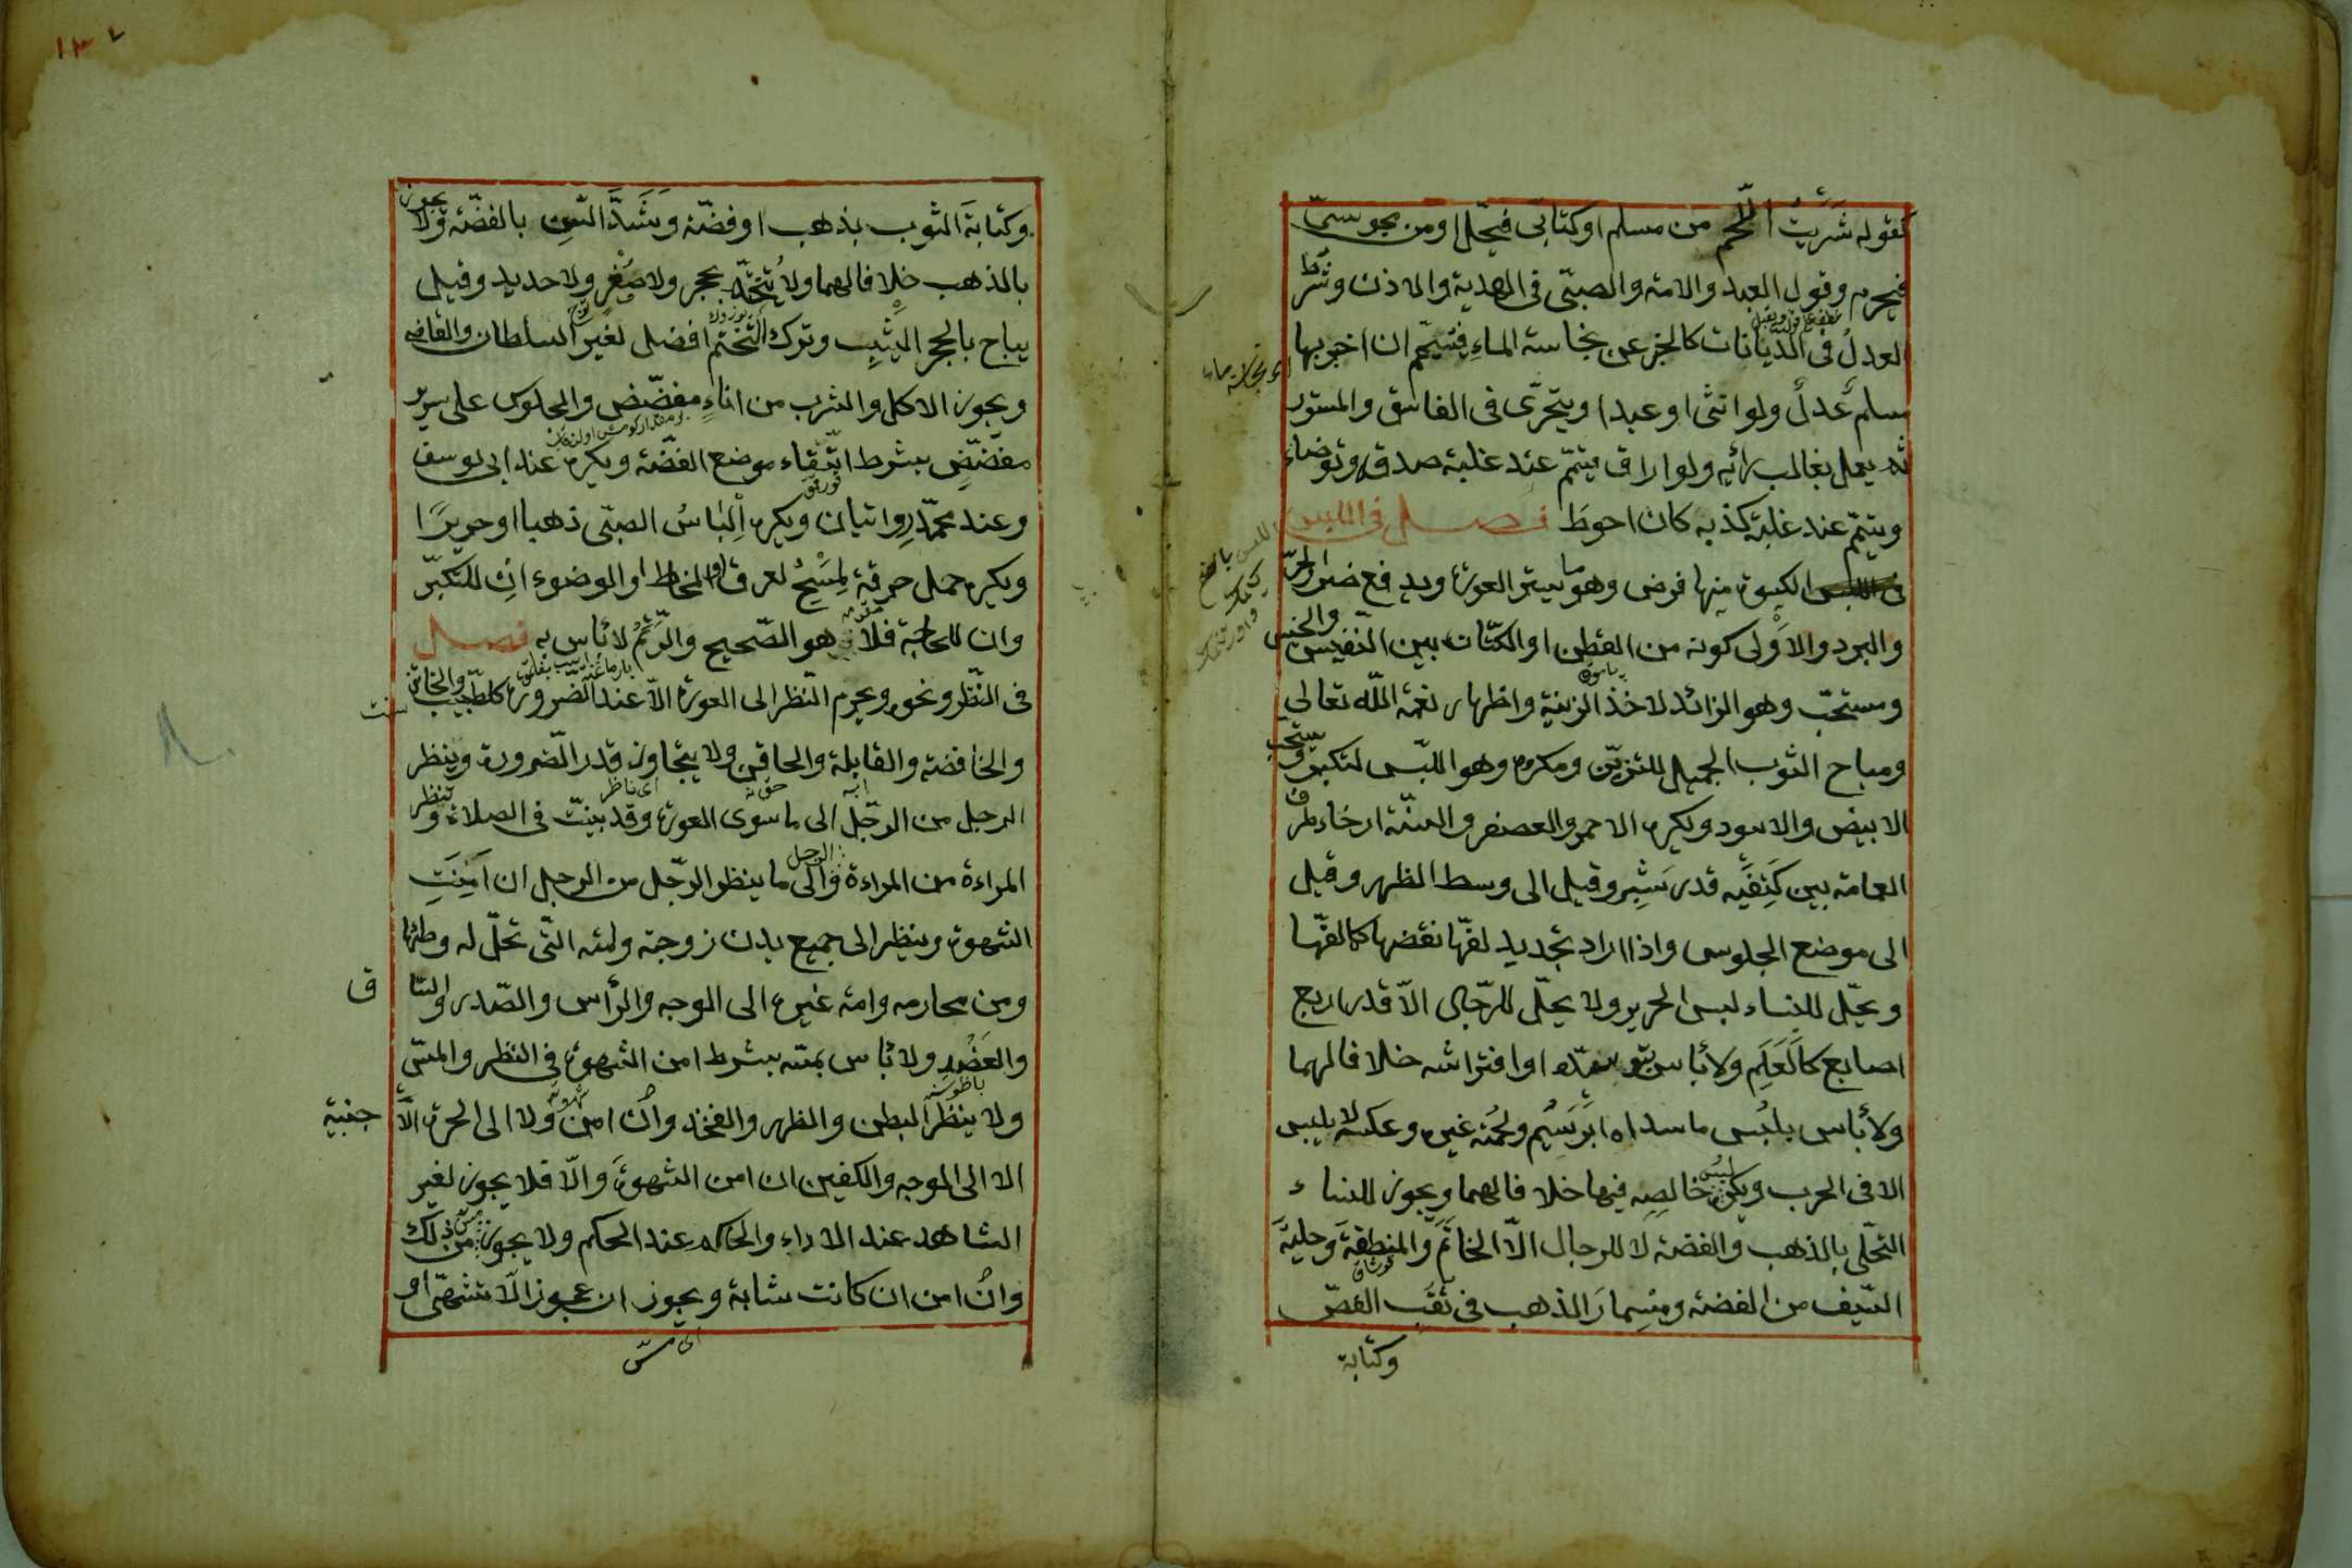 كقوله شَرَيْتُ اللّحم من مسلم او كتابى فيحّل او من مجوسىّ
فيحرم وقول العبد والامة والصبىّ فى الهدية والاذن وشُرط
العدلُ فى الدّيانات كالخبر عن نجاسة الماءِ فتيمّم ان اخبر بها
مسلم عَدلٌ ولو انثى او عبدا ويتحرّى فى الفاسق والمستور
ثم يعمل بغالب رائيه ولو اراق فيتمّم عند غلبة صدقه وتوضاء
ويتيمّم عند غلبة كذبه كان احوط فصل فى اللبس
الكسوة منها فرض وهو ما يستر العورة ويدفع ضرر الحرّ
والبرد والاَوْلى كونه من القطن او الكتّان بين النّفيس والخسيس
ومستحبّ وهو الزائد لاخذ الزينة واظهار نعمة اللّه تعالى
ومباح الثوب الجميل للتزيّن ومكروه وهو اللبّس لتكبر ويستحب
الابيض والاسود ويكره الاحمر والعصفر والسنّة ارخاء طرف
العمامة بين كَتِفَيه قدر شِبر وقيل الى وسط الظهر وقيل
الى موضع الجلوس واذا اراد تجديد لفّها نقضها كما لفّها
ويحّل للنساء لبس الحرير ولا يحلّ للرّجال الاّ قدر اربع
اصابع كالعَلَم ولا بأس بتوسّده او افتراشه خلافا لهما
ولا بأس بلبُس ما سداه ابَرَيسَم ولحُمته غيره وعكسه لا يلبس
الا فى الحرب ويكره لبس خالصِه فيها خلافا لهما ويجوز للنساء
التحّلى بالذهب والفضة لا للرجال الاّ الخاتَم والمنطقة وحلية
السّيف من الفضة ومسِمارَ الذهب فى ثقب الفصّ
وكتابة
١٣٧
وكتابة الثوب بذهب او فضّة وشَدَّ السّن بالفضّة ولا يجوز
بالذهب خلافا لهما ولا يُتختّم بحجر ولا صُفْرٍ ولا حديد وقيل
يباح بالحجر اليَشْبِ وترك التختّم افضل لغير السلطان والقاضى
ويجوز الاكل والشرب من اناءٍ مفضّض والجلوس على سرير
مفضّضٍ بشرط اتّقاء موضع الفضّة ويكره عند ابى يوسف
وعند محمّد روايتان ويكره اِلْباسُ الصبّى ذهبا او حريرًا
ويكره حمل خرقة لِمَسْحِ لعرق او المخاط او الوضوء انِ للتكبّر
وان للحاجة فلا هو الصّحيح والرَّتَمُ لا بأس به فصل
فى النّظر ونحوه ويحرم النّظر الى العورة الاّ عند الضّرورة كالطّبيب والخاتن
والخافضة والقابلة والحاقن ولا يتجاوز قدر الضّرورة وينظر
الرجل من الرّجل الى ما سوى العورة وقد بينتّ فى الصلاة وتنظر
المراءة من المراءة والى الرجل ما ينظر الرّجل من الرجل ان اَمِنَتِ
الشهوة وينظر الى جميع بدن زوجته وامته التّى تحلّ له وطئها
ومن محارمه وامة غيره الى الوجه والرأس والصّدر والسّاق
والعَضُد ولا بأس بمسّه بشرط امن الشهوة فى النظر والمسّ
ولا ينظُر البطن والظهر والفخذ وان امن ولا الى الحرة الاّجنبية
الا الى الوجه والكفين ان امن الشهوة والّا فلا يجوز لغير
الشاهد عند الاداء والحاكم عند الحكم ولا يجوز مسّ ذلك
وان امن ان كانت شابة ويجوز ان عجوز الا تشتهّى او
اى مسّ